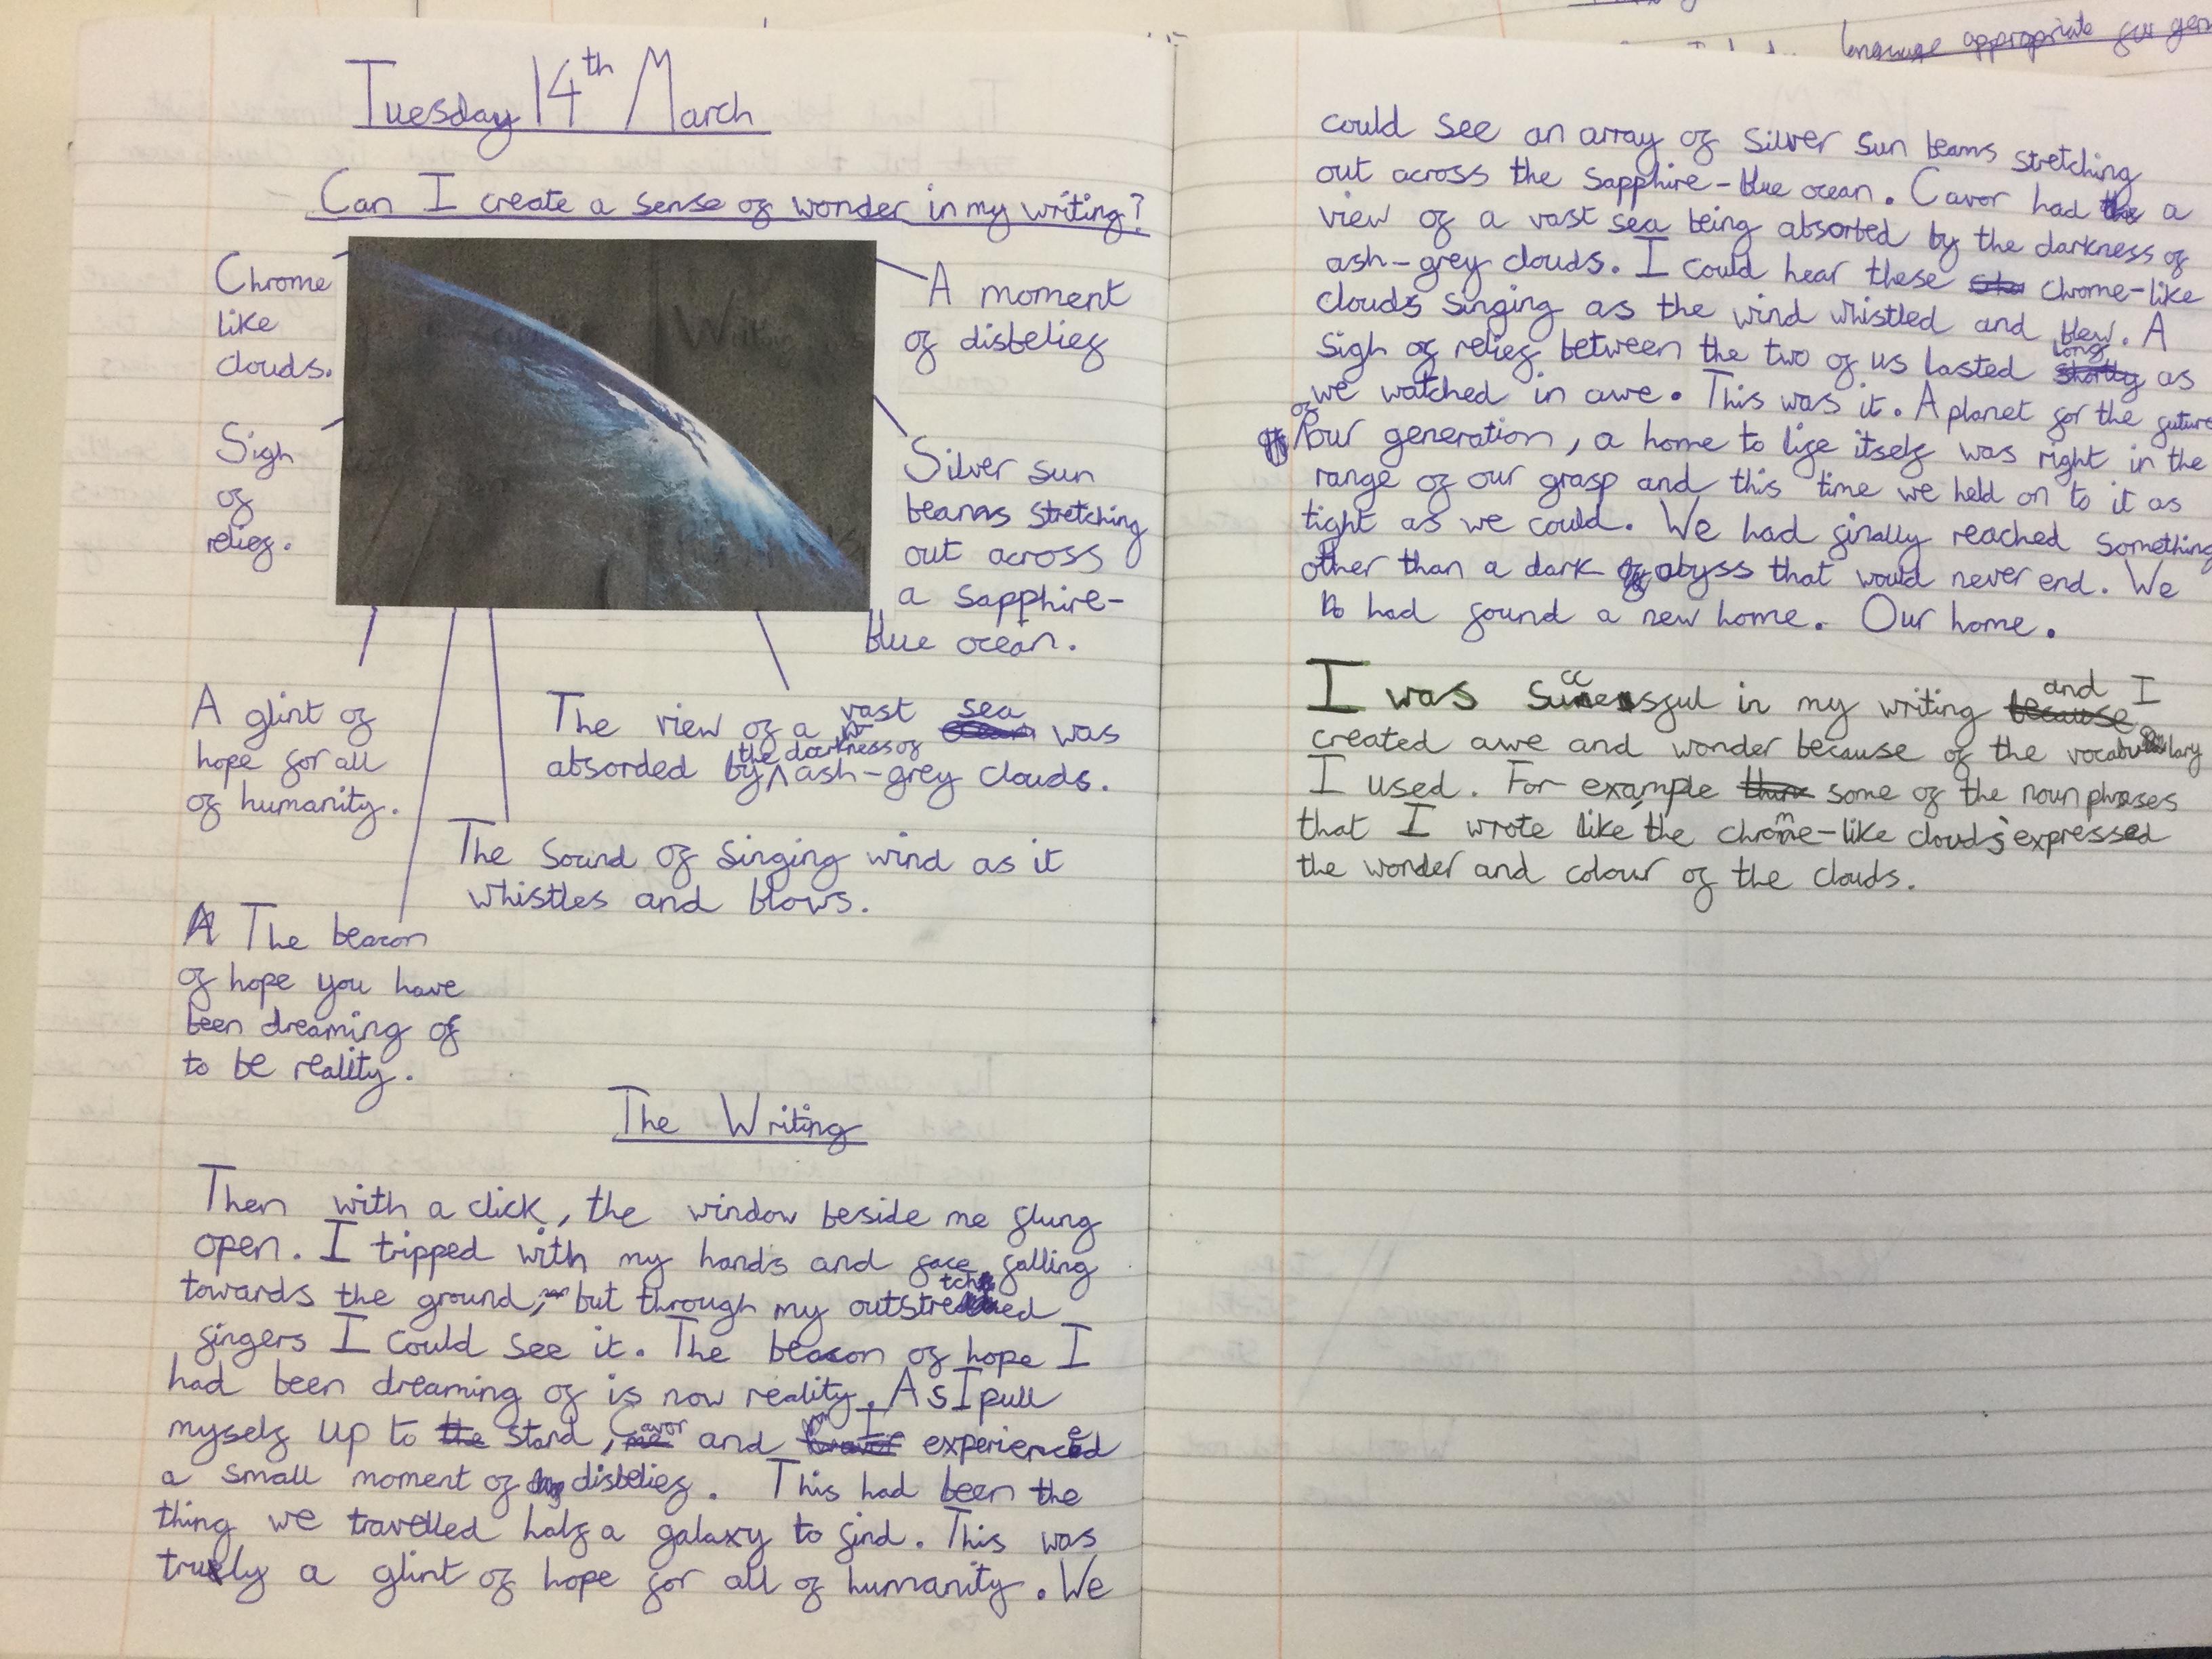 Tuesday 14th March
Can I create a sense of wonder in my writing?
Chrome
like
clouds.
A moment
of disbelief
Sigh
of
relief.
Silver sun
beams stretching
out across
a sapphire-
blue ocean.
A glint of
hope for all
of humanity.
The view of a vast sea was
absorded by the darkness of ash-grey clouds.
The sound of singing wind as it
whistles and blows.
The beacon
of hope you have
been dreaming of
to be reality.
The Writing
Then with a click, the window beside me flung
open. I tripped with my hands and face falling
towards the ground, but through my outstretched
fingers I could see it. The beacon of hope I
had been dreaming of is now reality. As I pull
myself up to the stand, Cavor and I experienced
a small moment of disbelief. This had been the
thing we travelled half a galaxy to find. This was
truly a glint of hope for all of humanity. We
language appropriate for
could see an array of silver sun beams stretching
out across the sapphire-blue ocean. Cavor had a
view of a vast sea being absorbed by the darkness of
ash-grey clouds. I could hear these chrome-like
clouds singing as the wind whistled and blew. A
sigh of relief between the two of us lasted long shortly as
we watched in awe. This was it. A planet for the future
of our generation, a home to life itself was right in the
range of our grasp and this time we held on to it as
tight as we could. We had finally reached something
other than a dark abyss that would never end. We
had found a new home. Our home.
I was successful in my writing because and I
created awe and wonder because of the vocabulary
I used. For example some of the noun phrases
that I wrote like 'the chrome-like clouds' expressed
the wonder and colour of the clouds.